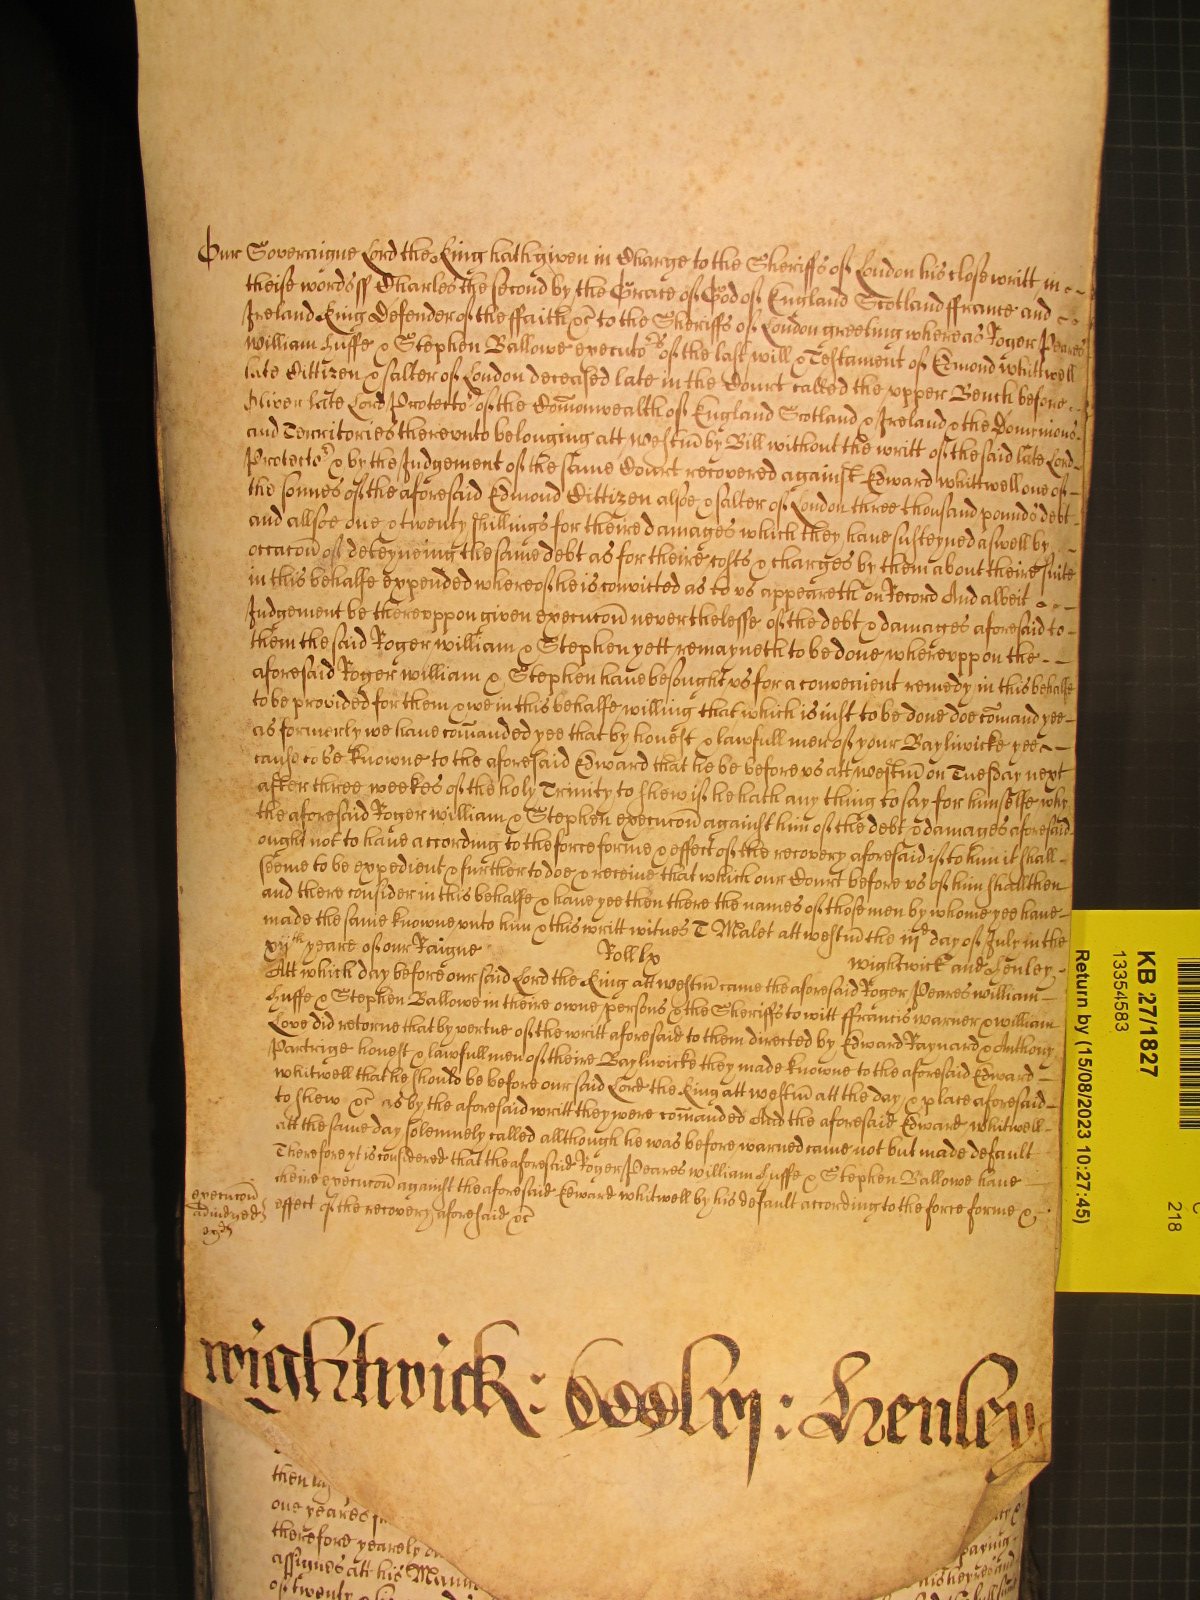 Our Soveraigne Lord the King hath given in Charge to the Sheriffs of London his close writt in
theise words ss Charles the second by the Grace of God of England Scotland ffrance and
Ireland King Defender of the ffaith &c to the Sheriffs of London greeting whereas Roger Peares
William Huffe & Stephen Ballowe executors of the last will & Testament of Edmond whittwell
late Cittizen & salter of London deceased late in the Court called the upper Bench before
Oliver late Lord Protector of the Com̄onwealth of England Scotland & Ireland & the Dominions
and Territories therevnto belonging att westm̄ by Bill without the writt of the said late Lord
Protector & by the Judgement of the same Court recovered against Edward whittwell one of
the sonnes of the aforesaid Edmond Cittizen alsoe & salter of London three thousand pounds debt
and allsoe one & twenty shillings for theire damages which they have susteyned aswell by
occac̄on of deteyneing the same debt as for theire costs & charges by them about theire suite
in this behalfe expended whereof he is convicted as to vs appeareth on Record And albeit
Judgement be therevppon given execuc̄on neverthelesse of the debt & damages aforesaid to
them the said Roger william & Stephen yett remayneth to be done wherevppon the
aforesaid Roger william & Stephen have besought vs for a convenient remedy in this behalfe
to be provided for them & we in this behalfe willing that which is iust to be done doe com̄and yee
as formerly we have com̄anded yee that by honest & lawfull men of your Bayliwicke yee
cause to be knowne to the aforesaid Edward that he be before vs att westm̄ on Tuesday next
after three weekes of the holy Trinity to shew if he hath any thing to say for himselfe why
the aforesaid Roger william & Stephen execuc̄on against him of the debt & damages aforesaid
ought not to have according to the force forme & effect of the recovery aforesaid if to him it shall
seeme to be expedient & further to doe & receive that which our Court before vs of him shall then
and there consider in this behalfe & have yee then there the names of those men by whome yee have
made the same knowne vnto him & this writt witnes T Malet att westm̄ the iijd day of July in the
xijth yeare of our Raigne Roll lx wightwick and Henley
Att which day before our said Lord the King att westm̄ came the aforesaid Roger Peares william
Huffe & Stephen Ballowe in theire owne persons & the Sheriffs to witt ffrancis warner & william
Love did retorne that by vertue of the writt aforesaid to them directed by Edward Raynard & Anthony
Partrige honest & lawfull men of theire Bayliwicke they made knowne to the aforesaid Edward
whitwell that he should be before our said Lord the King att westm̄ att the day & place aforesaid
to shew &c as by the aforesaid writt they were com̄anded And the aforesaid Edward whitwell
att the same day solemnely called allthough he was before warned came not but made default
Therefore yt is considered that the aforesaid Roger Peares william Huffe & Stephen Ballowe have
theire execuc̄on against the aforesaid Edward whitwell by his default according to the force forme &
execuc̄on
adiudged
effect of the recovery aforesaid &c
wightwick : : Henley
then
one yeares
therefore yearely
assignes att his
of twenty
paying
his heyres and
KB 27/1827
13354583
Return by (15/08/2023 10:27:45)
218